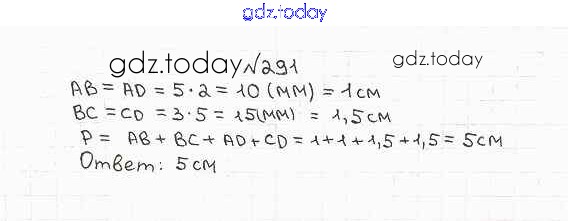 gdz.today
gdz.today №291 gdz.today
AB = AD = 5 · 2 = 10 (мм) = 1 см
BC = CD = 3 · 5 = 15(мм) = 1,5 см
P = AB + BC + AD + CD = 1+1+1,5+1,5 = 5см
Ответ: 5 см